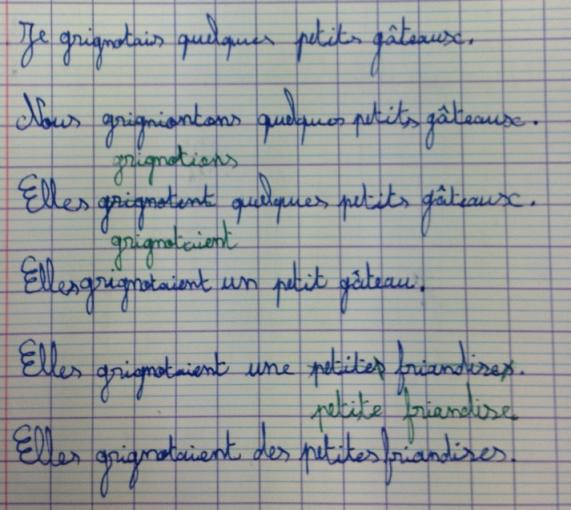 Je grignotais quelques petits gâteaux.
Nous grigniontons quelques petits gâteaux.
grignotions
Elles grignotent quelques petits gâteaux.
grignotaient
Elles grignotaient un petit gâteau.
Elles grignotaient une petites friandises.
petite friandise
Elles grignotaient des petites friandises.